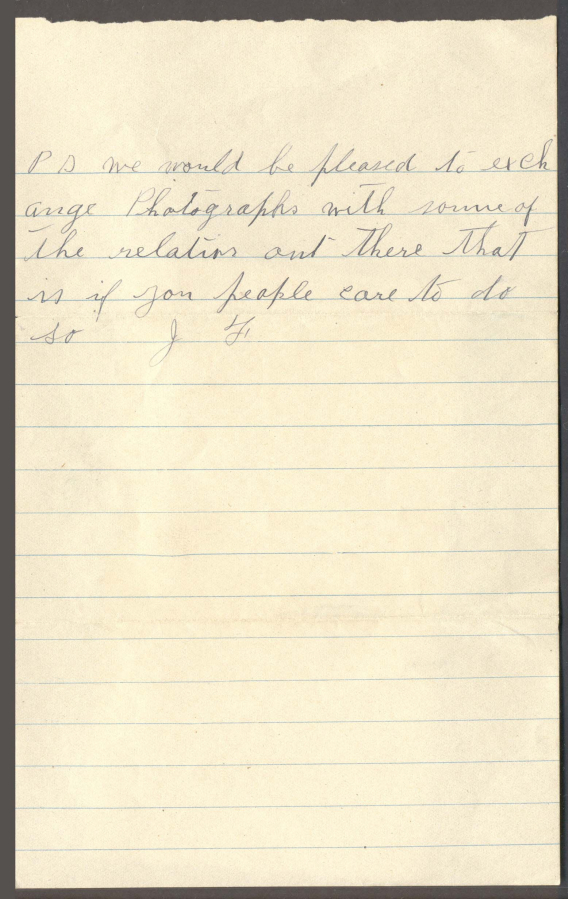 P S we would be pleased to exch
ange Photographs with some of
the relations out there that
is if you people care to do
so J F